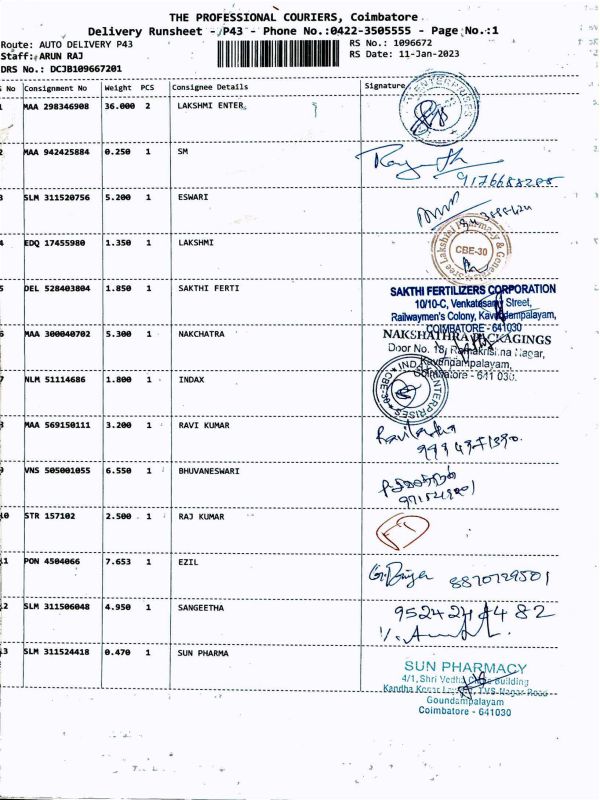 THE PROFESSIONAL COURIERS, Coimbatore
Delivery Runsheet - P43 - Phone No.:0422-3505555 - Page No.:1
Route: AUTO DELIVERY P43
RS No.: 1096672
Staff: ARUN RAJ
RS Date: 11-Jan-2023
DRS No.: DCJB109667201
No Consignment No Weight PCS Consignee Details Signature
1 MAA 298346908 36.000 2 LAKSHMI ENTER
ENTERPRISES
2 MAA 942425884 0.250 1 SM
3 SLM 311520756 5.200 1 ESWARI
4 EDQ 17455980 1.350 1 LAKSHMI
Lakshmi Pharmacy & General
CBE-30
5 DEL 528403804 1.850 1 SAKTHI FERTI
SAKTHI FERTILIZERS CORPORATION
10/10-C, Venkatesamy Street,
Railwaymen's Colony, Kavundempalayam,
COIMBATORE - 641030
6 MAA 300040702 5.300 1 NAKCHATRA
NAKSHATHRA PACKAGINGS
Door No. 18, Ramakrishna Nagar,
Coimbatore - 641 030.
7 NLM 51114686 1.800 1 INDAX
ENTERPRISES
CBE-30
8 MAA 569150111 3.200 1 RAVI KUMAR
9 VNS 505001055 6.550 1 BHUVANESWARI
10 STR 157102 2.500 1 RAJ KUMAR
11 PON 4504066 7.653 1 EZIL
8870729501
12 SLM 311506048 4.950 1 SANGEETHA
13 SLM 311524418 0.470 1 SUN PHARMA
SUN PHARMACY
4/1, Shri Vedha Building
TVS Nagar Road
Goundampalayam
Coimbatore - 641030